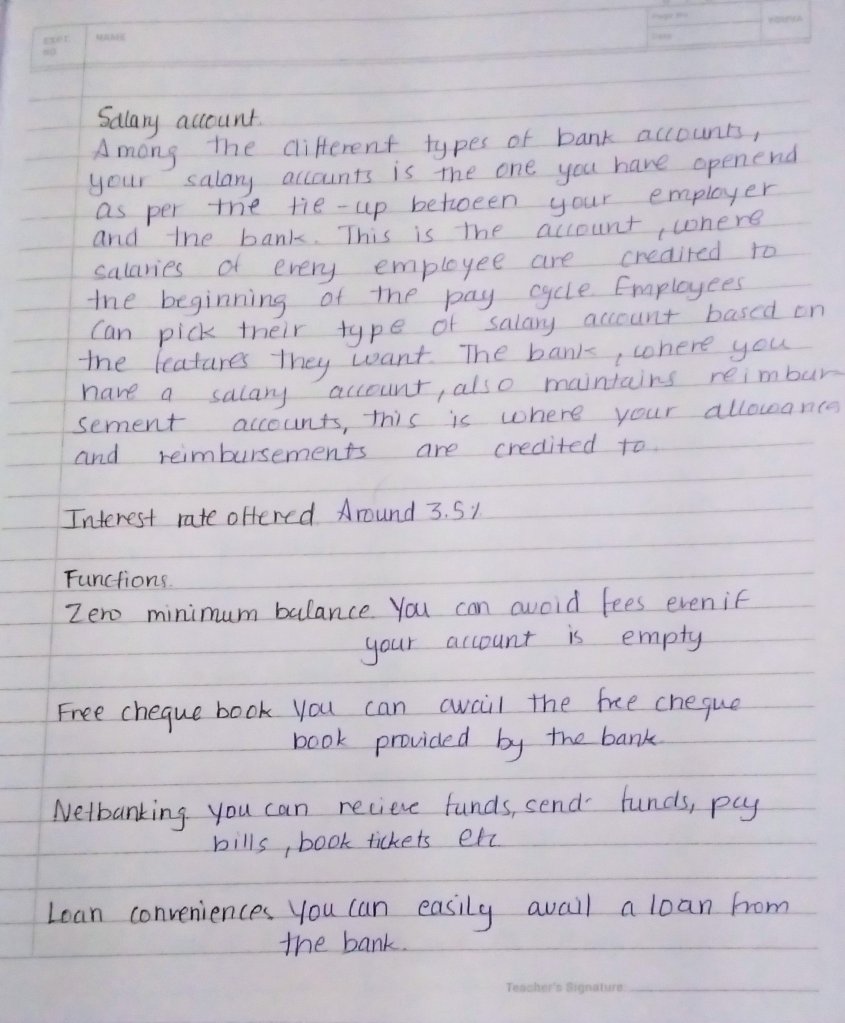 EXPT. NO
NAME
Page No.
Date
YOUVA
Salary account.
Among the different types of bank accounts,
your salary accounts is the one you have openend
as per the tie-up between your employer
and the bank. This is the account, where
salaries of every employee are credited to
the beginning of the pay cycle. Employees
Can pick their type of salary account based on
the featares they want. The bank, where you
have a salary account, also maintains reimbur-
sement accounts, this is where your allowance
and reimbursements are credited to.
Interest rate offered Around 3.5%
Functions.
Zero minimum balance. You can avoid fees even if
your account is empty
Free cheque book You can avail the free cheque
book provided by the bank
Netbanking you can recieve funds, send funds, pay
bills, book tickets etc
Loan conveniences You can easily avail a loan from
the bank.
Teacher's Signature